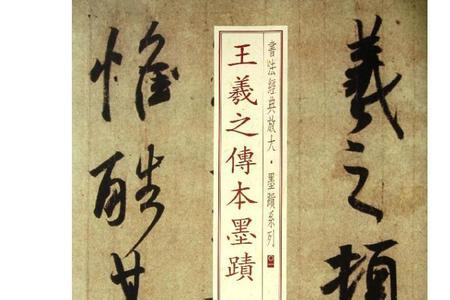 羲之頓
書法經典放大・墨蹟系列
王羲之傳本墨蹟
惟酷甚